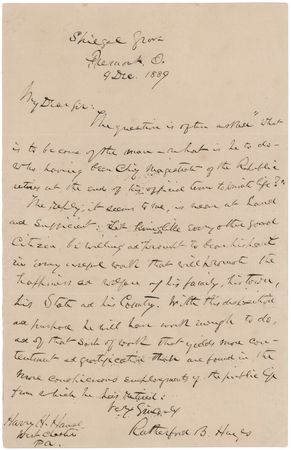 Spiegel Grove
Fremont, O.
9 Dec. 1889
My Dear Sir:
The question is often asked "What
is to become of the man - what is he to do -
who, having been Chief Magistrate of the Republic
retires at the end of his official term to private life?"
The reply, it seems to me, is near at hand
and sufficient: Let him, like every other good
Citizen, be willing and prompt to bear his part
in every useful work that will promote the
happiness and welfare of his family, his town,
his State and his Country. With this disposition
and purpose he will have work enough to do,
and of that sort of work that yields more con-
tentment and gratification than are found in the
more conspicuous employments of the public life
from which he has retired.
Very Sincerely
Rutherford B. Hayes
Harry H.
West Chester
Pa.